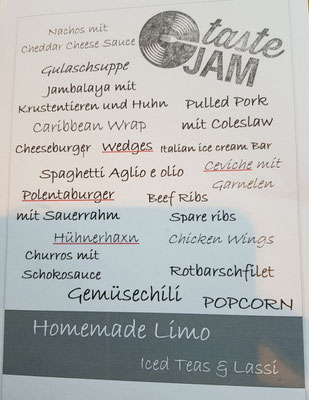 Nachos mit
Cheddar Cheese Sauce
taste
JAM
Gulaschsuppe
Jambalaya mit
Krustentieren und Huhn
Pulled Pork
mit Coleslaw
Caribbean Wrap
Cheeseburger
Wedges
Italian ice cream Bar
Ceviche mit
Garnelen
Spaghetti Aglio e olio
Polentaburger
mit Sauerrahm
Beef Ribs
Spare ribs
Hühnerhaxn
Chicken Wings
Churros mit
Schokosauce
Rotbarschfilet
Gemüsechili
POPCORN
Homemade Limo
Iced Teas & Lassi